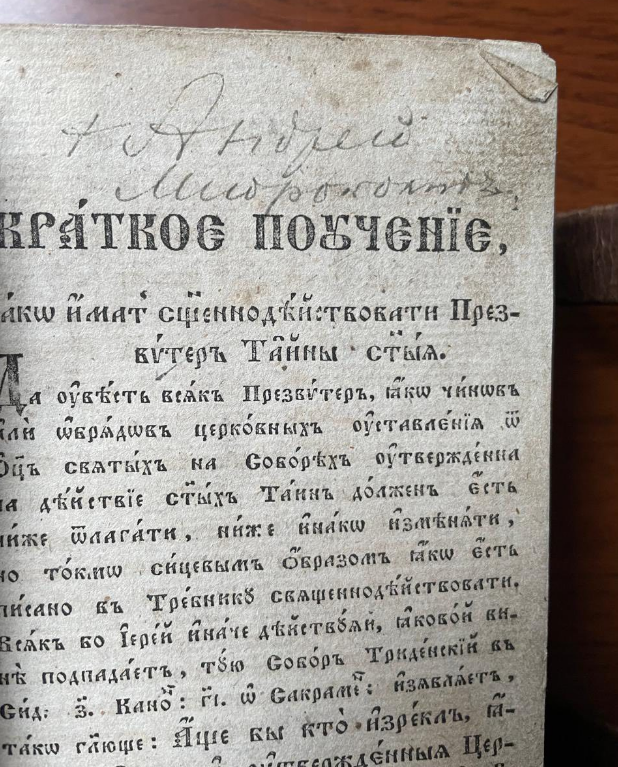 + Андрей
КРА́ТКОЕ ПОꙊЧЕНЇЕ,
а́кѡ и҆́мат̾ сщ҃еннодѣ́йствовати През-
вѵ́теръ Та̑йны ст҃ы́ѧ.
Да ᲂу҆вѣ́сть всѧ́къ Презвѵ́теръ, ꙗ҆́кѡ чи́нѡвъ
и҆лѝ ѡ҆брѧ́дѡвъ церко́вныхъ ᲂу҆ставле́нїѧ ѿ
Ѻц҃ъ свѧты́хъ на Собо́рѣхъ ᲂу҆твержде́нна
на дѣ́йствїе ст҃ы́хъ Та́инъ до́лженъ є҆́сть
ни́же ѿлага́ти, ни́же и҆на́кѡ и҆змѣнѧ́ти,
но то́кмѡ си́цевымъ ѻ҆́бразомъ ꙗ҆́кѡ є҆́сть
пи́сано въ Тре́бникꙋ свѧщеннодѣ́йствовати.
Всѧ́къ бо І҆ере́й и҆на́че дѣ́йствꙋѧй, ꙗ҆ково́й ви-
нѣ̀ подпада́етъ, тꙋ́ю Собо́ръ Триде́нскїй въ
Сѝд: з҃. Кано҇: г҃і. ѡ҆ Сакраме҇: и҆з̾ѧвлѧ́етъ,
та́кѡ гл҃юще: А҆́ще бы кто̀ и҆зре́клъ, ꙗ҆̀-
ᲂу҆твержде́нныѧ Цер-